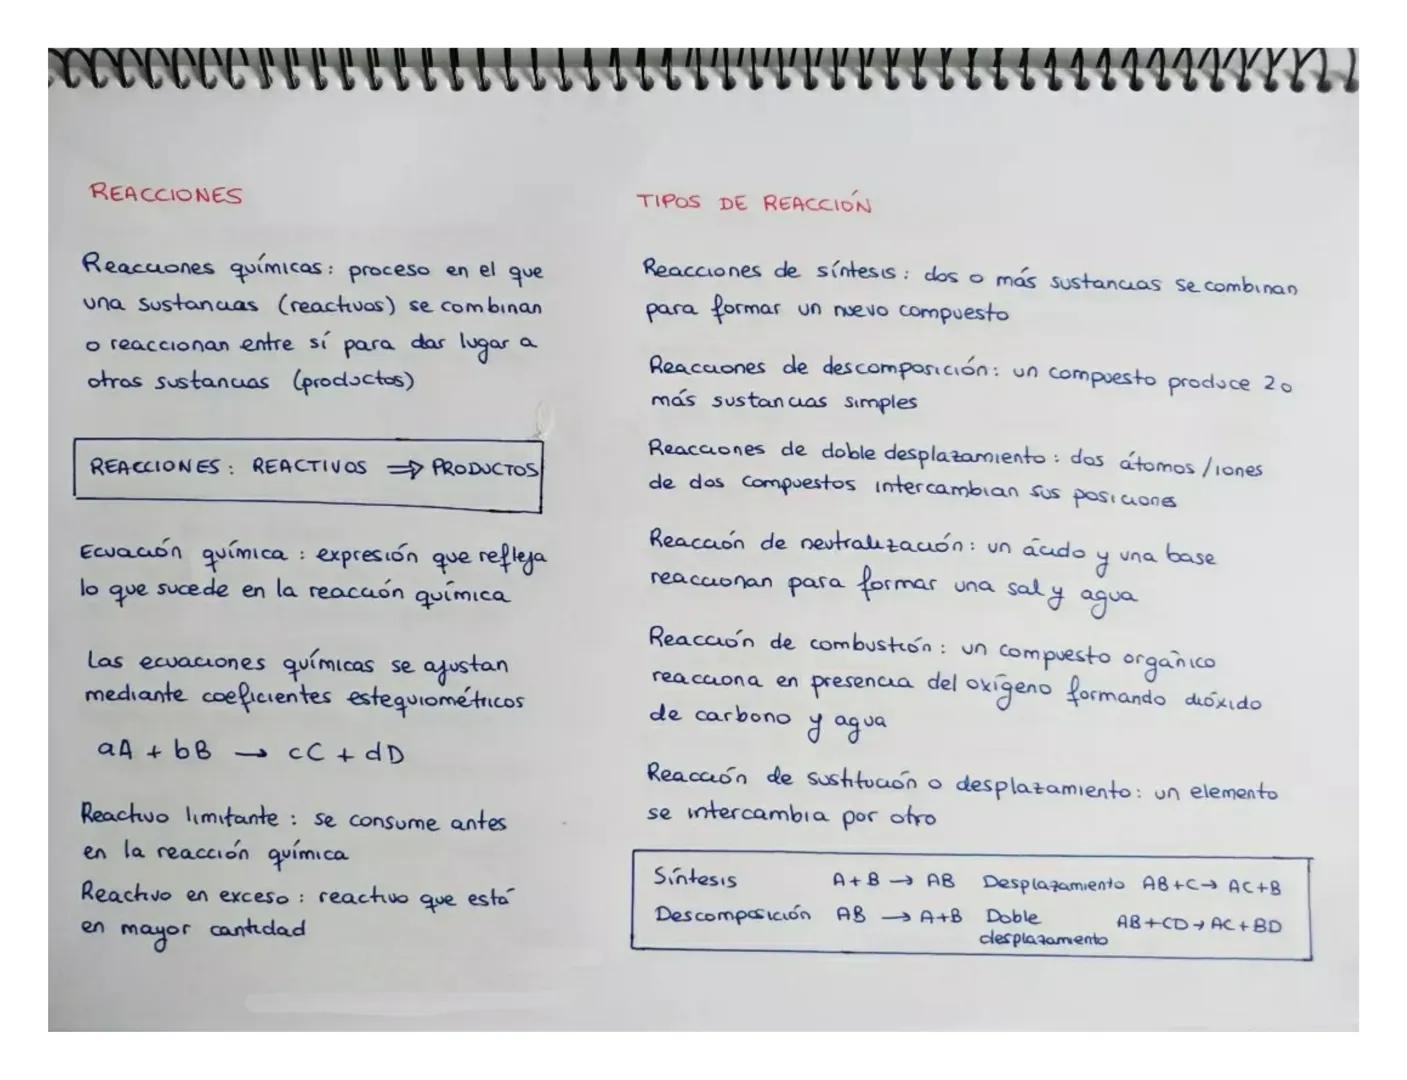 REACCIONES
Reacciones químicas: proceso en el que
una sustancias (reactivos) se combinan
o reaccionan entre sí para dar lugar a
otras sustancias (productos)
REACCIONES: REACTIVOS ⇒ PRODUCTOS
Ecuación química: expresión que refleja
lo que sucede en la reacción química
Las ecuaciones químicas se ajustan
mediante coeficientes estequiométricos
aA + bB → cC + dD
Reactivo limitante: se consume antes
en la reacción química
Reactivo en exceso: reactivo que está
en mayor cantidad
TIPOS DE REACCIÓN
Reacciones de síntesis: dos o más sustancias se combinan
para formar un nuevo compuesto
Reacciones de descomposición: un compuesto produce 2 o
más sustancias simples
Reacciones de doble desplazamiento: dos átomos/iones
de dos compuestos intercambian sus posiciones
Reacción de neutralización: un ácido y una base
reaccionan para formar una sal y agua
Reacción de combustión: un compuesto orgánico
reacciona en presencia del oxígeno formando dióxido
de carbono y agua
Reacción de sustitución o desplazamiento: un elemento
se intercambia por otro
Síntesis A + B → AB Desplazamiento AB + C → AC + B
Descomposición AB → A + B Doble AB + CD → AC + BD
desplazamento